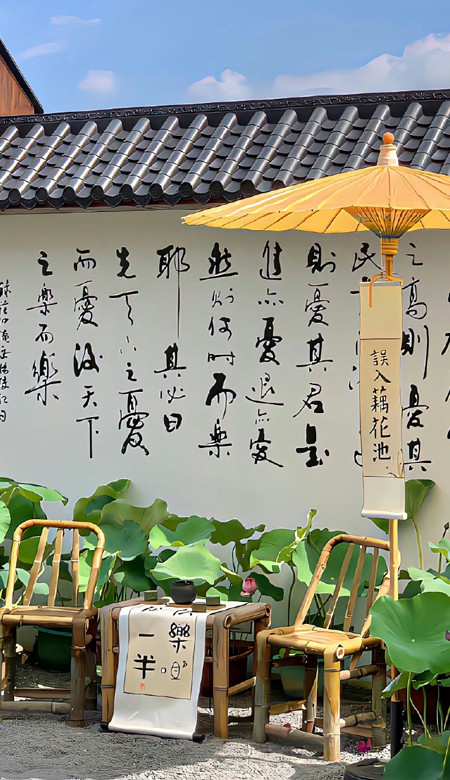 之高則憂其
民
則憂其君是
進亦憂退亦憂
然則何時而樂
耶其必曰
先天下之憂
而憂後天下
之樂而樂
誤入藕花池
樂
一半